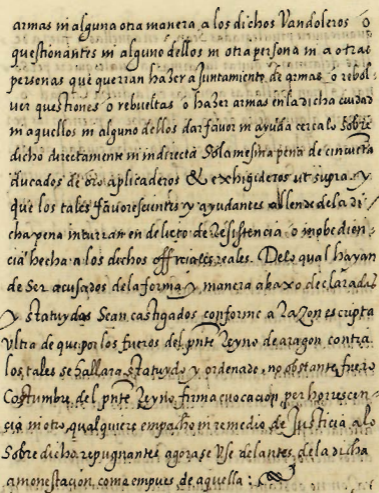 armas ni alguna otra manera a los dichos Vandoleros o
questionantes ni alguno dellos ni otra persona ni a otras
personas que querran hazer ajuntamiento de armas o rebol
uer questiones o rebueltas o hazer armas en la dicha ciudad
ni aquellos ni alguno dellos dar fauor ni ayuda cerca lo sobre
dicho directamente ni indirecta so la mesma pena de cincuenta
ducados de oro aplicaderos & exhigideros ut supra. y
que los tales fauorescientes y ayudantes allende de la di
cha pena incurran en delicto de resistencia o inobedien
cia hecha a los dichos officiales reales. De lo qual hayan
de ser acusados de la forma y manera abaxo declarada
y statuydas Sean castigados conforme a razon escripta
ultra de que por los fueros del pnte Reyno de aragon contra
los tales se hallara statuydo y ordenado, no obstante fuero
Costumbre del pnte Reyno, firma euocacion per horrescen
cia ni otro qualquiere empacho ni remedio de Justicia a lo
Sobredicho repugnante agora se use de lantes de la dicha
amonestacion, como empues de aquella: